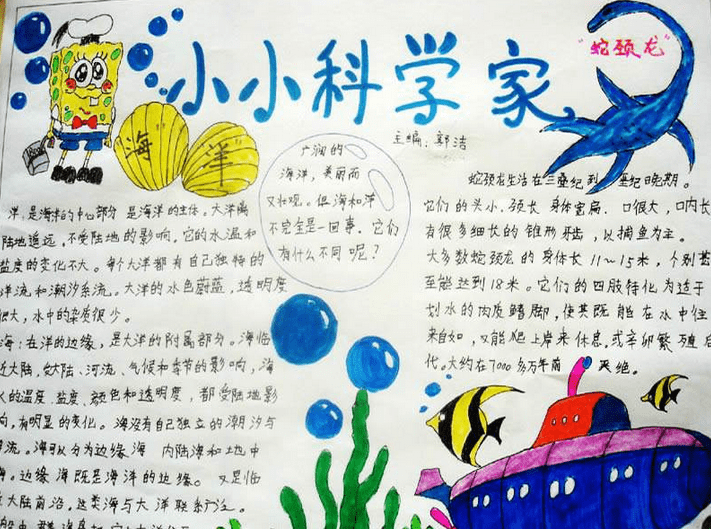 小小科学家
主编:郭洁
"海 洋"
广阔的
海洋,美丽而
又壮观。但海和洋
不完全是一回事。它们
有什么不同呢?
洋:是海洋的中心部分 是海洋的主体。大洋离
陆地遥远,不受陆地的影响,它的水温和
盐度的变化不大。每个大洋都有自己独特的
洋流和潮汐系流。大洋的水色蔚蓝,透明度
很大,水中的杂质很少。
海:在洋的边缘,是大洋的附属部分。海临
近大陆,受大陆、河流、气候和季节的影响,海
水的温度、盐度、颜色和透明度,都受陆地影
响,有明显的变化。海没有自己独立的潮汐与
海流。海可以分为边缘海 内陆海和地中
海。边缘海既是海洋的边缘。又是临
近大陆前沿,这类海与大洋联系广泛。
"蛇颈龙"
蛇颈龙生活在三叠纪到 垩纪晚期。
它们的头小、颈长 身体宽扁、口很大,口内长
有很多细长的锥形牙齿,以捕鱼为主。
大多数蛇颈龙的身体长11~15米,个别甚
至能达到18米。它们的四肢特化为适于
划水的肉质鳍脚,使其既能在水中往
来自如,又能爬上岸来休息,或辛卵繁殖后
代。大约在7000多万年前 灭绝。